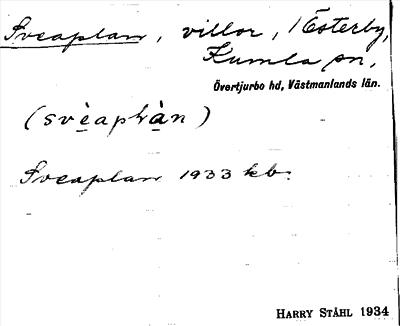 Sveaplan, villor, i Österby,
Kumla sn,
Övertjurbo hd, Västmanlands län.
(svèaplàn)
Sveaplan 1933 kb.
HARRY STÅHL 1934